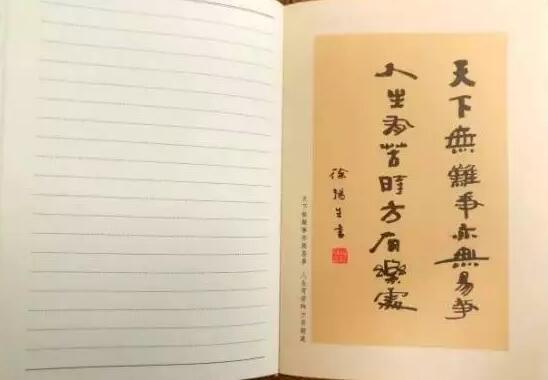 天下無難事亦無易事
人生有苦時方有樂處
徐揚生書
天下無難事亦無易事 人生有苦時方有樂處